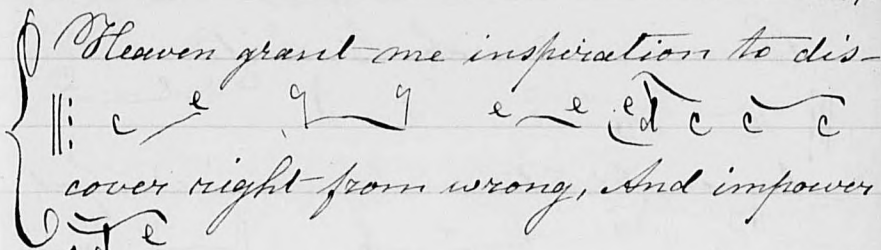 Heaven grant me inspiration to dis-
||: c e g g e e e d c c c
cover right from wrong, And impower
d e